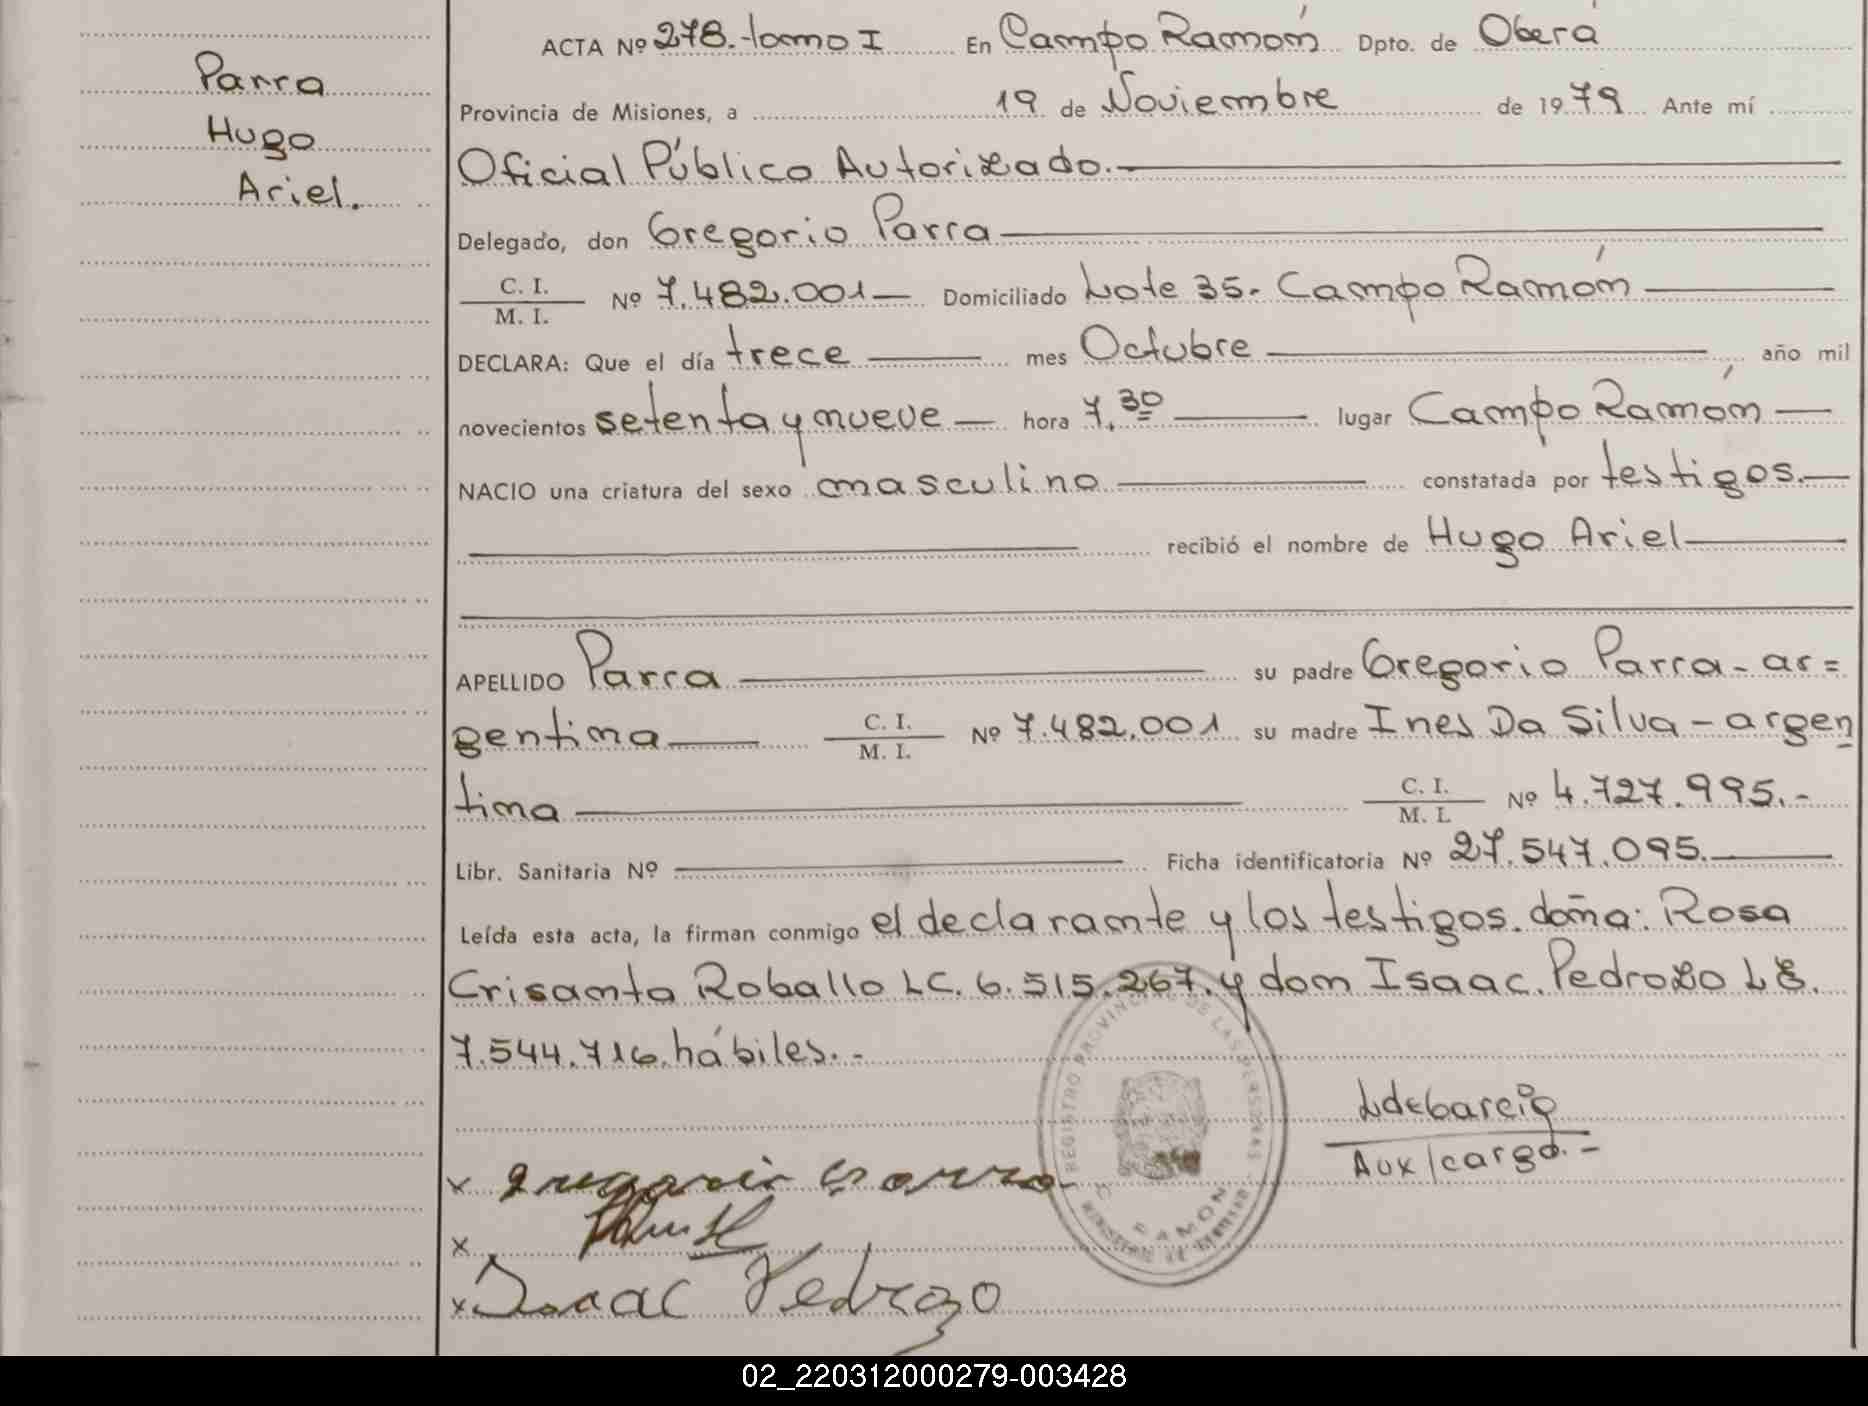 Parra
Hugo
Ariel.
ACTA Nº 278. tomo I En Campo Ramón Dpto. de Oberá
Provincia de Misiones, a 19 de Noviembre de 1979 Ante mí
Oficial Público Autorizado.
Delegado, don Gregorio Parra
C. I.
M. I. Nº 7.482.001 Domiciliado Lote 35. Campo Ramón
DECLARA: Que el día trece mes Octubre año mil
novecientos setenta y nueve hora 7.30 lugar Campo Ramón
NACIO una criatura del sexo masculino constatada por testigos.
recibió el nombre de Hugo Ariel
APELLIDO Parra su padre Gregorio Parra - ar=
gentina C. I. M. I. Nº 7.482.001 su madre Ines Da Silva - argen
tina C. I. M. I. Nº 4.727.995.-
Libr. Sanitaria Nº Ficha identificatoria Nº 27.547.095.
Leída esta acta, la firman conmigo el declarante y los testigos. doña: Rosa
Crisanta Roballo LC. 6.515.267. y don Isaac. Pedrozo LE.
7.544.716. hábiles.-
REGISTRO PROVINCIAL DE LAS PERSONAS
RAMON
Aux/cargo.-
x Gregorio Parra
x
x Isaac Pedrozo
02_220312000279-003428